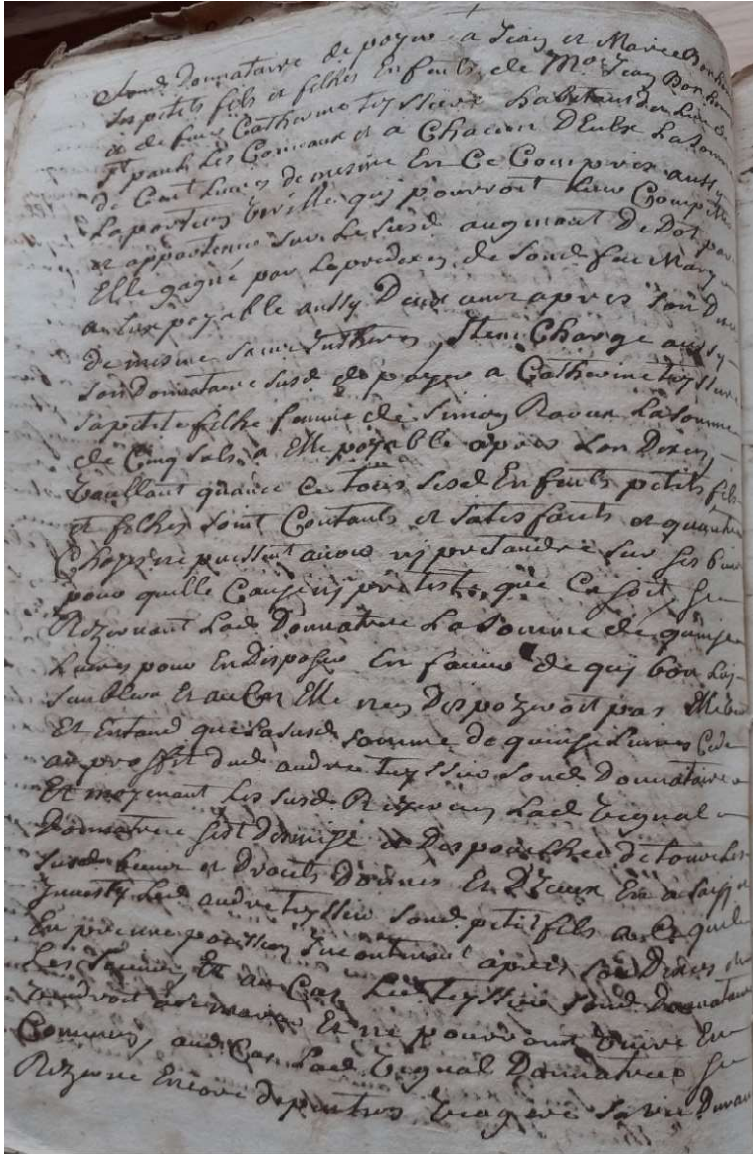 Sond. Donnataire de payer a Jean et Marie Bonh
ses petits fils et filhes Enfants de Me Jean Bonhom
et de feue Catherine teyssiere habitans du Lieu de
St paul Les Coneaux et a Chacun D'Eulx La somme
de Cent Livres de mesme En Ce Compris aussy
La portion Virille quy pourroit Leur Competer
et appartenir sur Le susd. augment De Dot par
Elle gagné par Le predeces de sond. feu Mary
payable aussy Deux ans apres son Deces
de mesme sans Intherets, Item Charge aussy
son Donnataire susd. de payer a Catherine teyssiere
sa petite filhe femme de Simon La somme
de Cinq sols a Elle payable apres son Deces,
Voullant quance ce tous sesd. Enfants petits fils
et filhes soint Contants et satisfaits et quautre
Choze ne puissent avoir ny pretandre sur ses biens
pour quelle Cauze et pretexte que Ce soit, se
Rezervant Lad. Donnatrice La somme de quinze
Livres pour En Disposer En faveur de quy bon Luy
semblera Et au Cas Elle nen Dispozeroit pas Elle veut
Et Entand que La susd. somme de quinse Livres Cede
au proffit dud. andre teyssier sond. Donnataire
Et moyenant Les susd. Rezerves Lad. Vignal
Donnatrice sest Demise et Despouilhee de tous Les
susd. biens et Droits Donnés Et D'Iceux En a saisy et
Investy Led. andre teyssier sond. petit fils a Ce quil
En prenne possion Incontinant apres son Deces
Les Et au Cas Led. teyssier sond. Donnataire
Viendroit a se marier Et ne pourroint Vivre En
Commun, aud. Cas Lad. Vignal Donnatrice se
Rezerve Encore de pention Viagere sa vie Durant